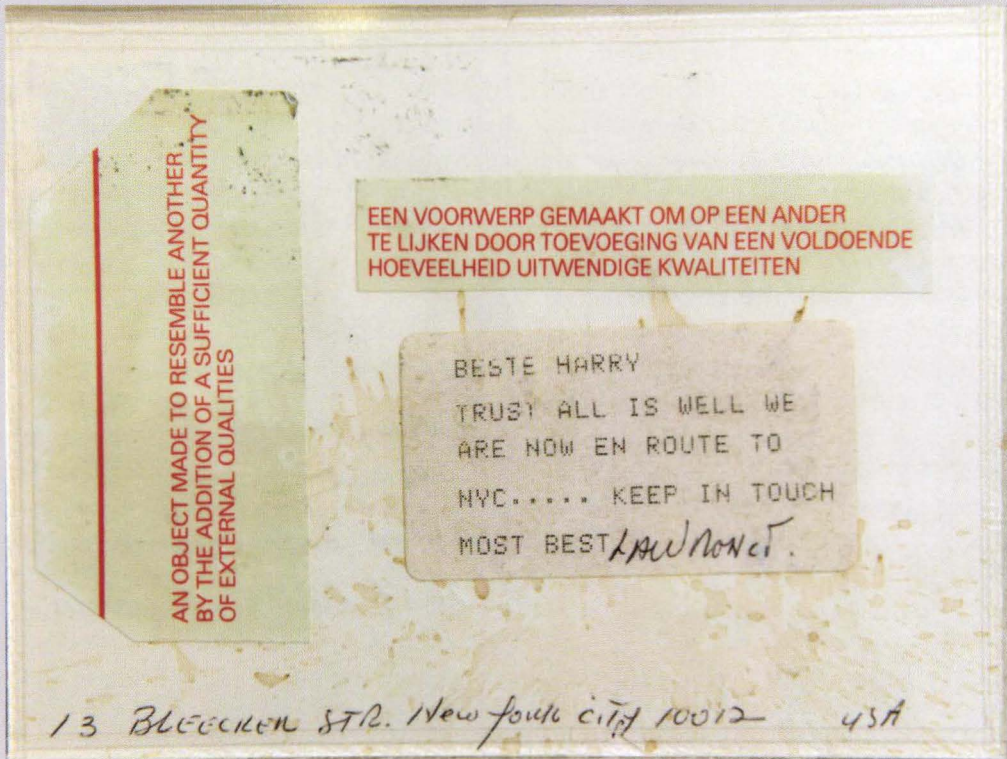 AN OBJECT MADE TO RESEMBLE ANOTHER
BY THE ADDITION OF A SUFFICIENT QUANTITY
OF EXTERNAL QUALITIES
EEN VOORWERP GEMAAKT OM OP EEN ANDER
TE LIJKEN DOOR TOEVOEGING VAN EEN VOLDOENDE
HOEVEELHEID UITWENDIGE KWALITEITEN
BESTE HARRY
TRUST ALL IS WELL WE
ARE NOW EN ROUTE TO
NYC..... KEEP IN TOUCH
MOST BEST LAWRENCE.
13 BLEECKER STR. New York city 10012 USA